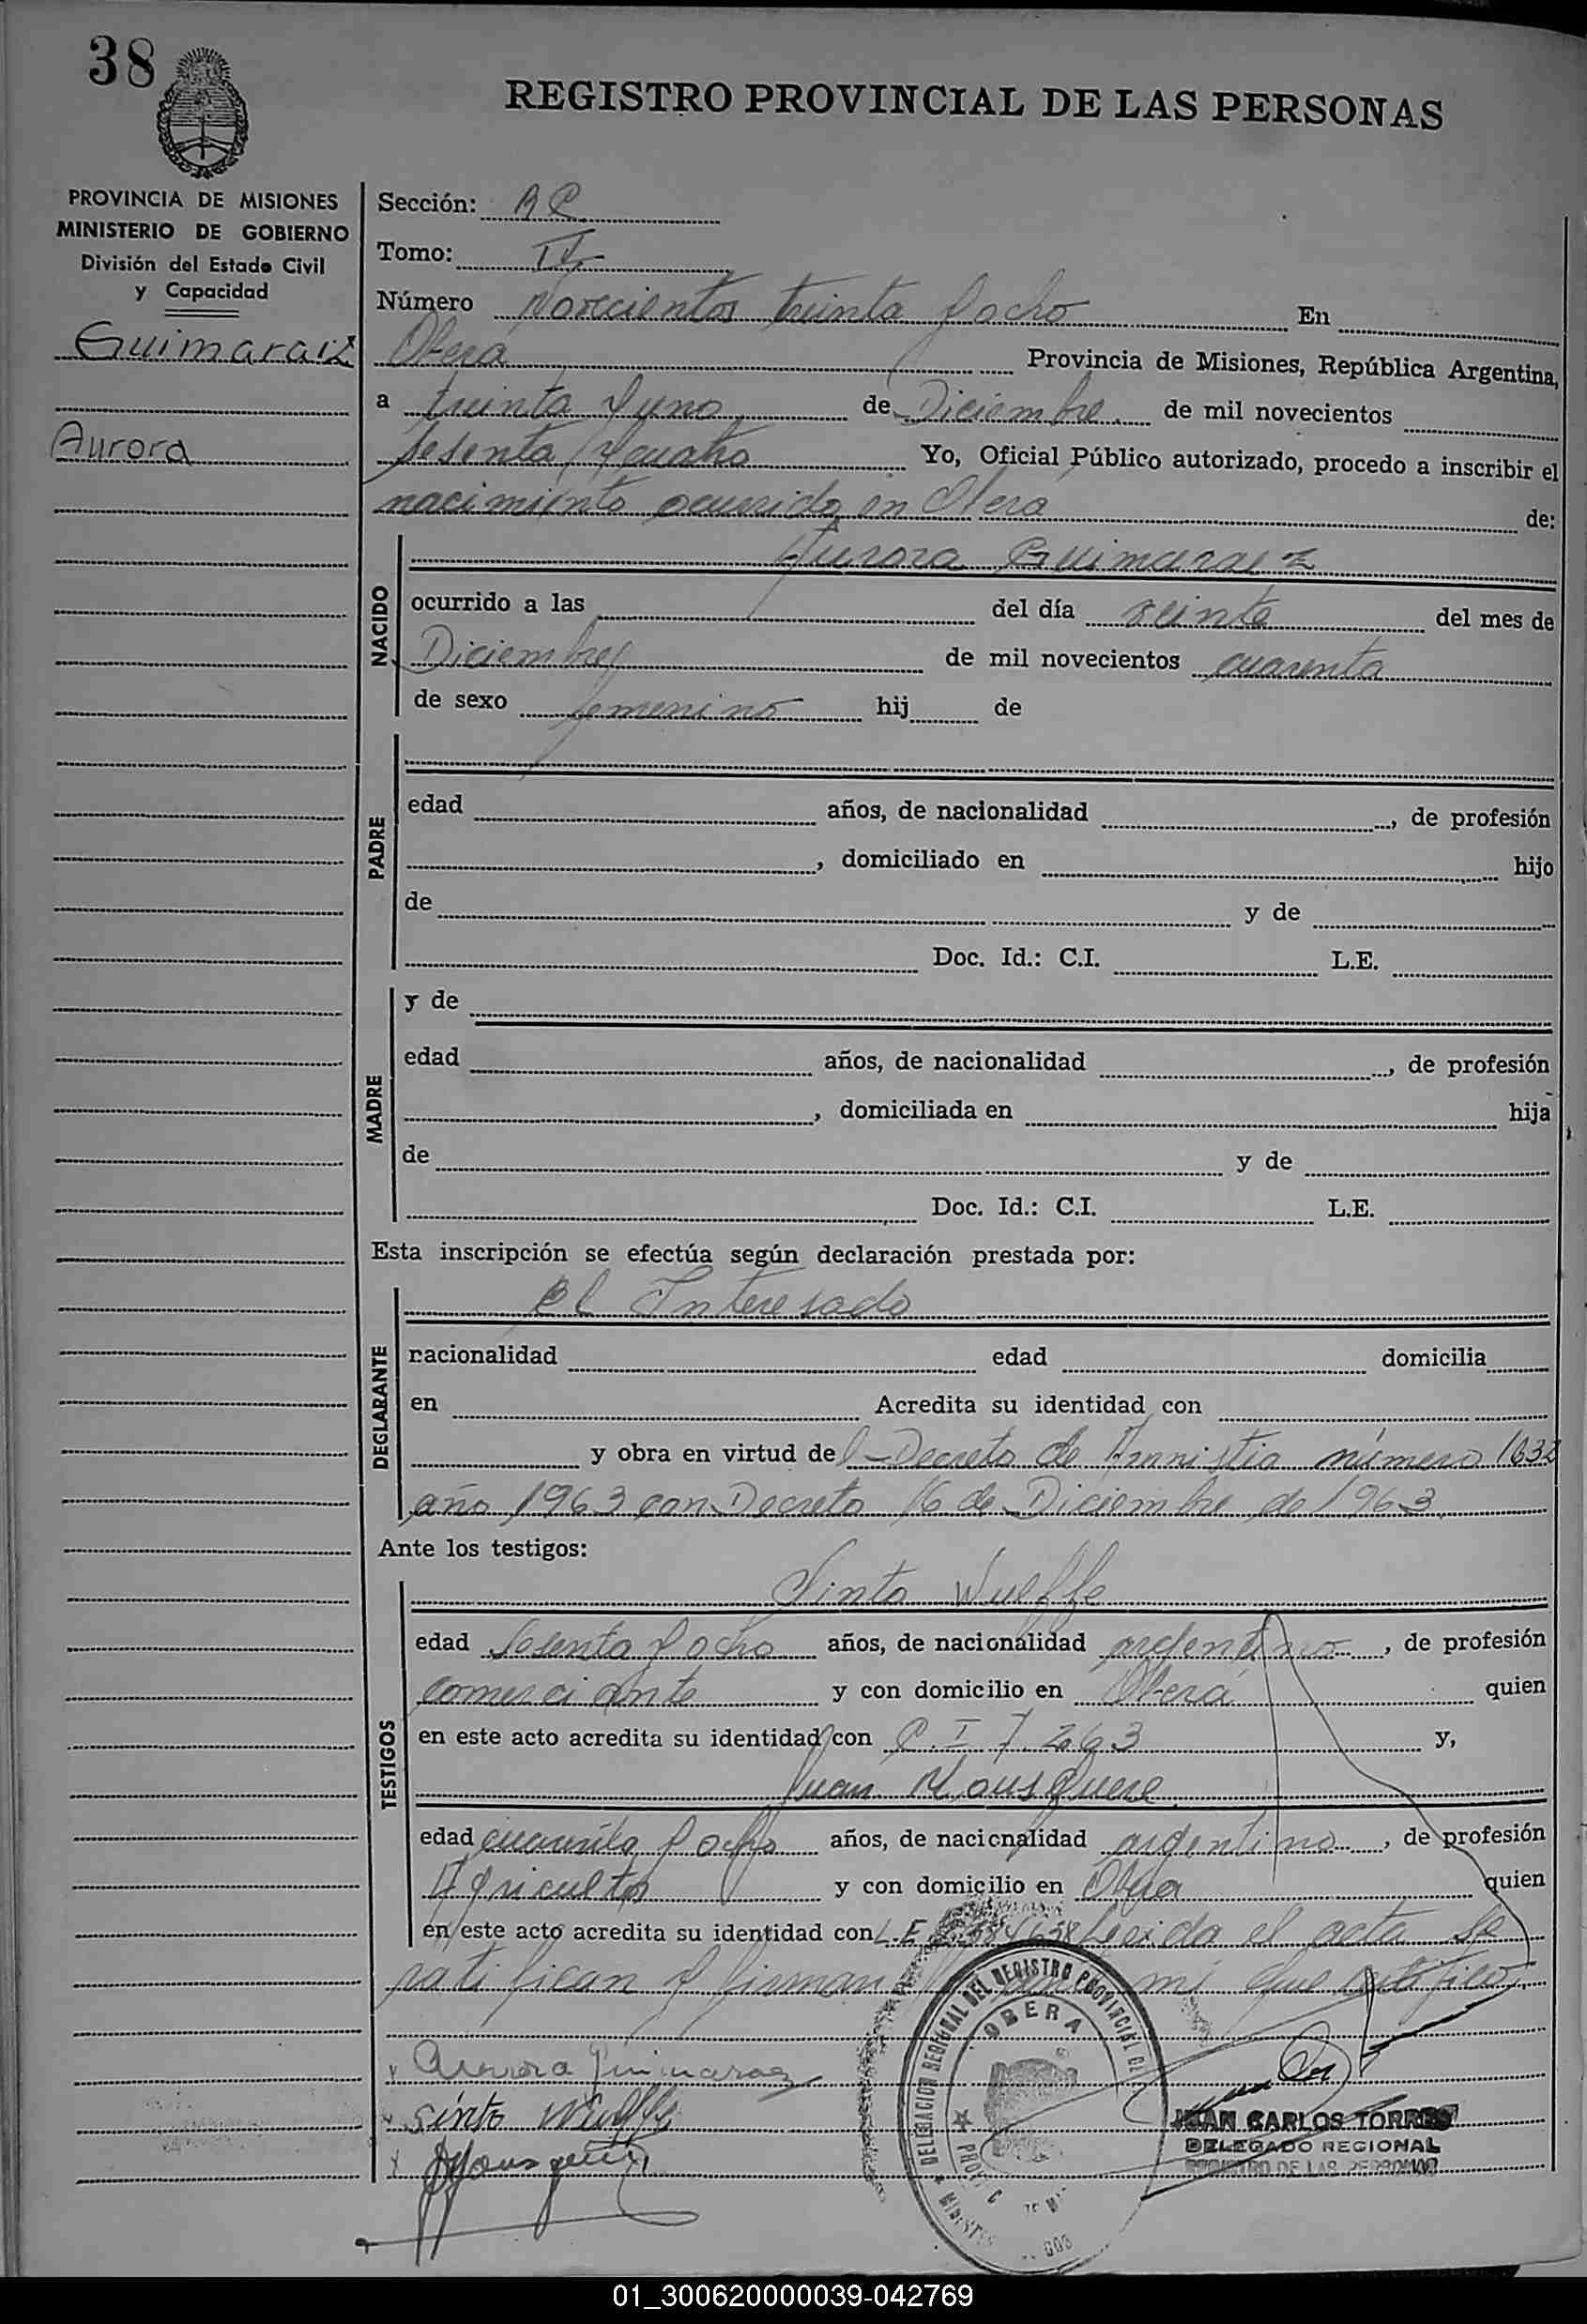 38
REGISTRO PROVINCIAL DE LAS PERSONAS
PROVINCIA DE MISIONES
MINISTERIO DE GOBIERNO
División del Estado Civil
y Capacidad
Guimaraiz
Aurora
Sección:
Tomo:
Número Novecientos treinta y ocho En
Oberá Provincia de Misiones, República Argentina,
a treinta y uno de Diciembre de mil novecientos
sesenta y cuatro Yo, Oficial Público autorizado, procedo a inscribir el
nacimiento ocurrido en Obera de:
NACIDO
Aurora Guimaraez
ocurrido a las del día veinte del mes de
Diciembre de mil novecientos cuarenta
de sexo femenino hij de
PADRE
edad años, de nacionalidad , de profesión
, domiciliado en hijo
de y de
Doc. Id.: C.I. L.E.
MADRE
y de
edad años, de nacionalidad , de profesión
, domiciliada en hija
de y de
Doc. Id.: C.I. L.E.
Esta inscripción se efectúa según declaración prestada por:
DEGLARANTE
El Interesado
nacionalidad edad domicilia
en Acredita su identidad con
y obra en virtud del Decreto de Amnistia número 1632
año 1963 con Decreto 16 de Diciembre de 1963
Ante los testigos:
TESTIGOS
Sinto Wulffe
edad Sesenta y ocho años, de nacionalidad argentino , de profesión
comerciante y con domicilio en Oberá quien
en este acto acredita su identidad con C.I 7.263 y,
Juan Mousquere
edad cuarenta y ocho años, de nacicnalidad argentino , de profesión
Agricultor y con domicilio en Obera quien
en este acto acredita su identidad con L.E Leida el acta se
ratifican y firman mi que certifico
Aurora Guimaraez
Sinto Wulffe
DELEGACION REGIONAL DEL REGISTRO PROVINCIAL DE
OBERA
JUAN CARLOS TORRES
DELEGADO REGIONAL
REGISTRO DE LAS PERSONAS
01_300620000039-042769